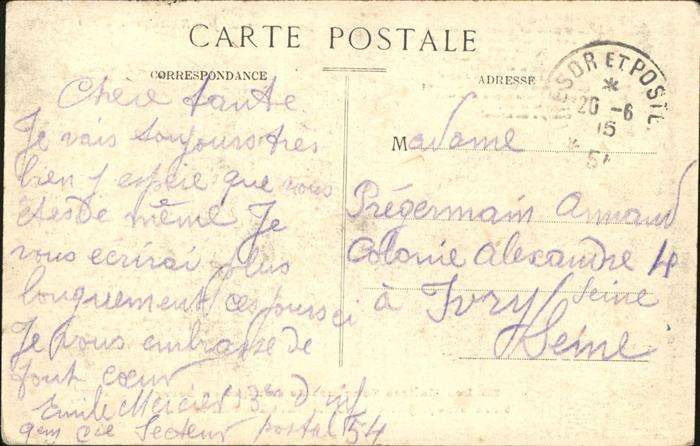 CARTE POSTALE
CORRESPONDANCE
ADRESSE
TRESOR ET POSTES
*
20 -6
15
* 54
Chère tante
Je vais toujours très
bien j espère que vous
êtes de même Je
vous écrirai plus
longuement ces jours ci
Je vous embrasse de
tout cœur
Emile Mercier 13e d inf
9em cie Secteur postal 54
Madame
Prégermain Armand
Colonie Alexandre 4
à Ivry / Seine
Seine